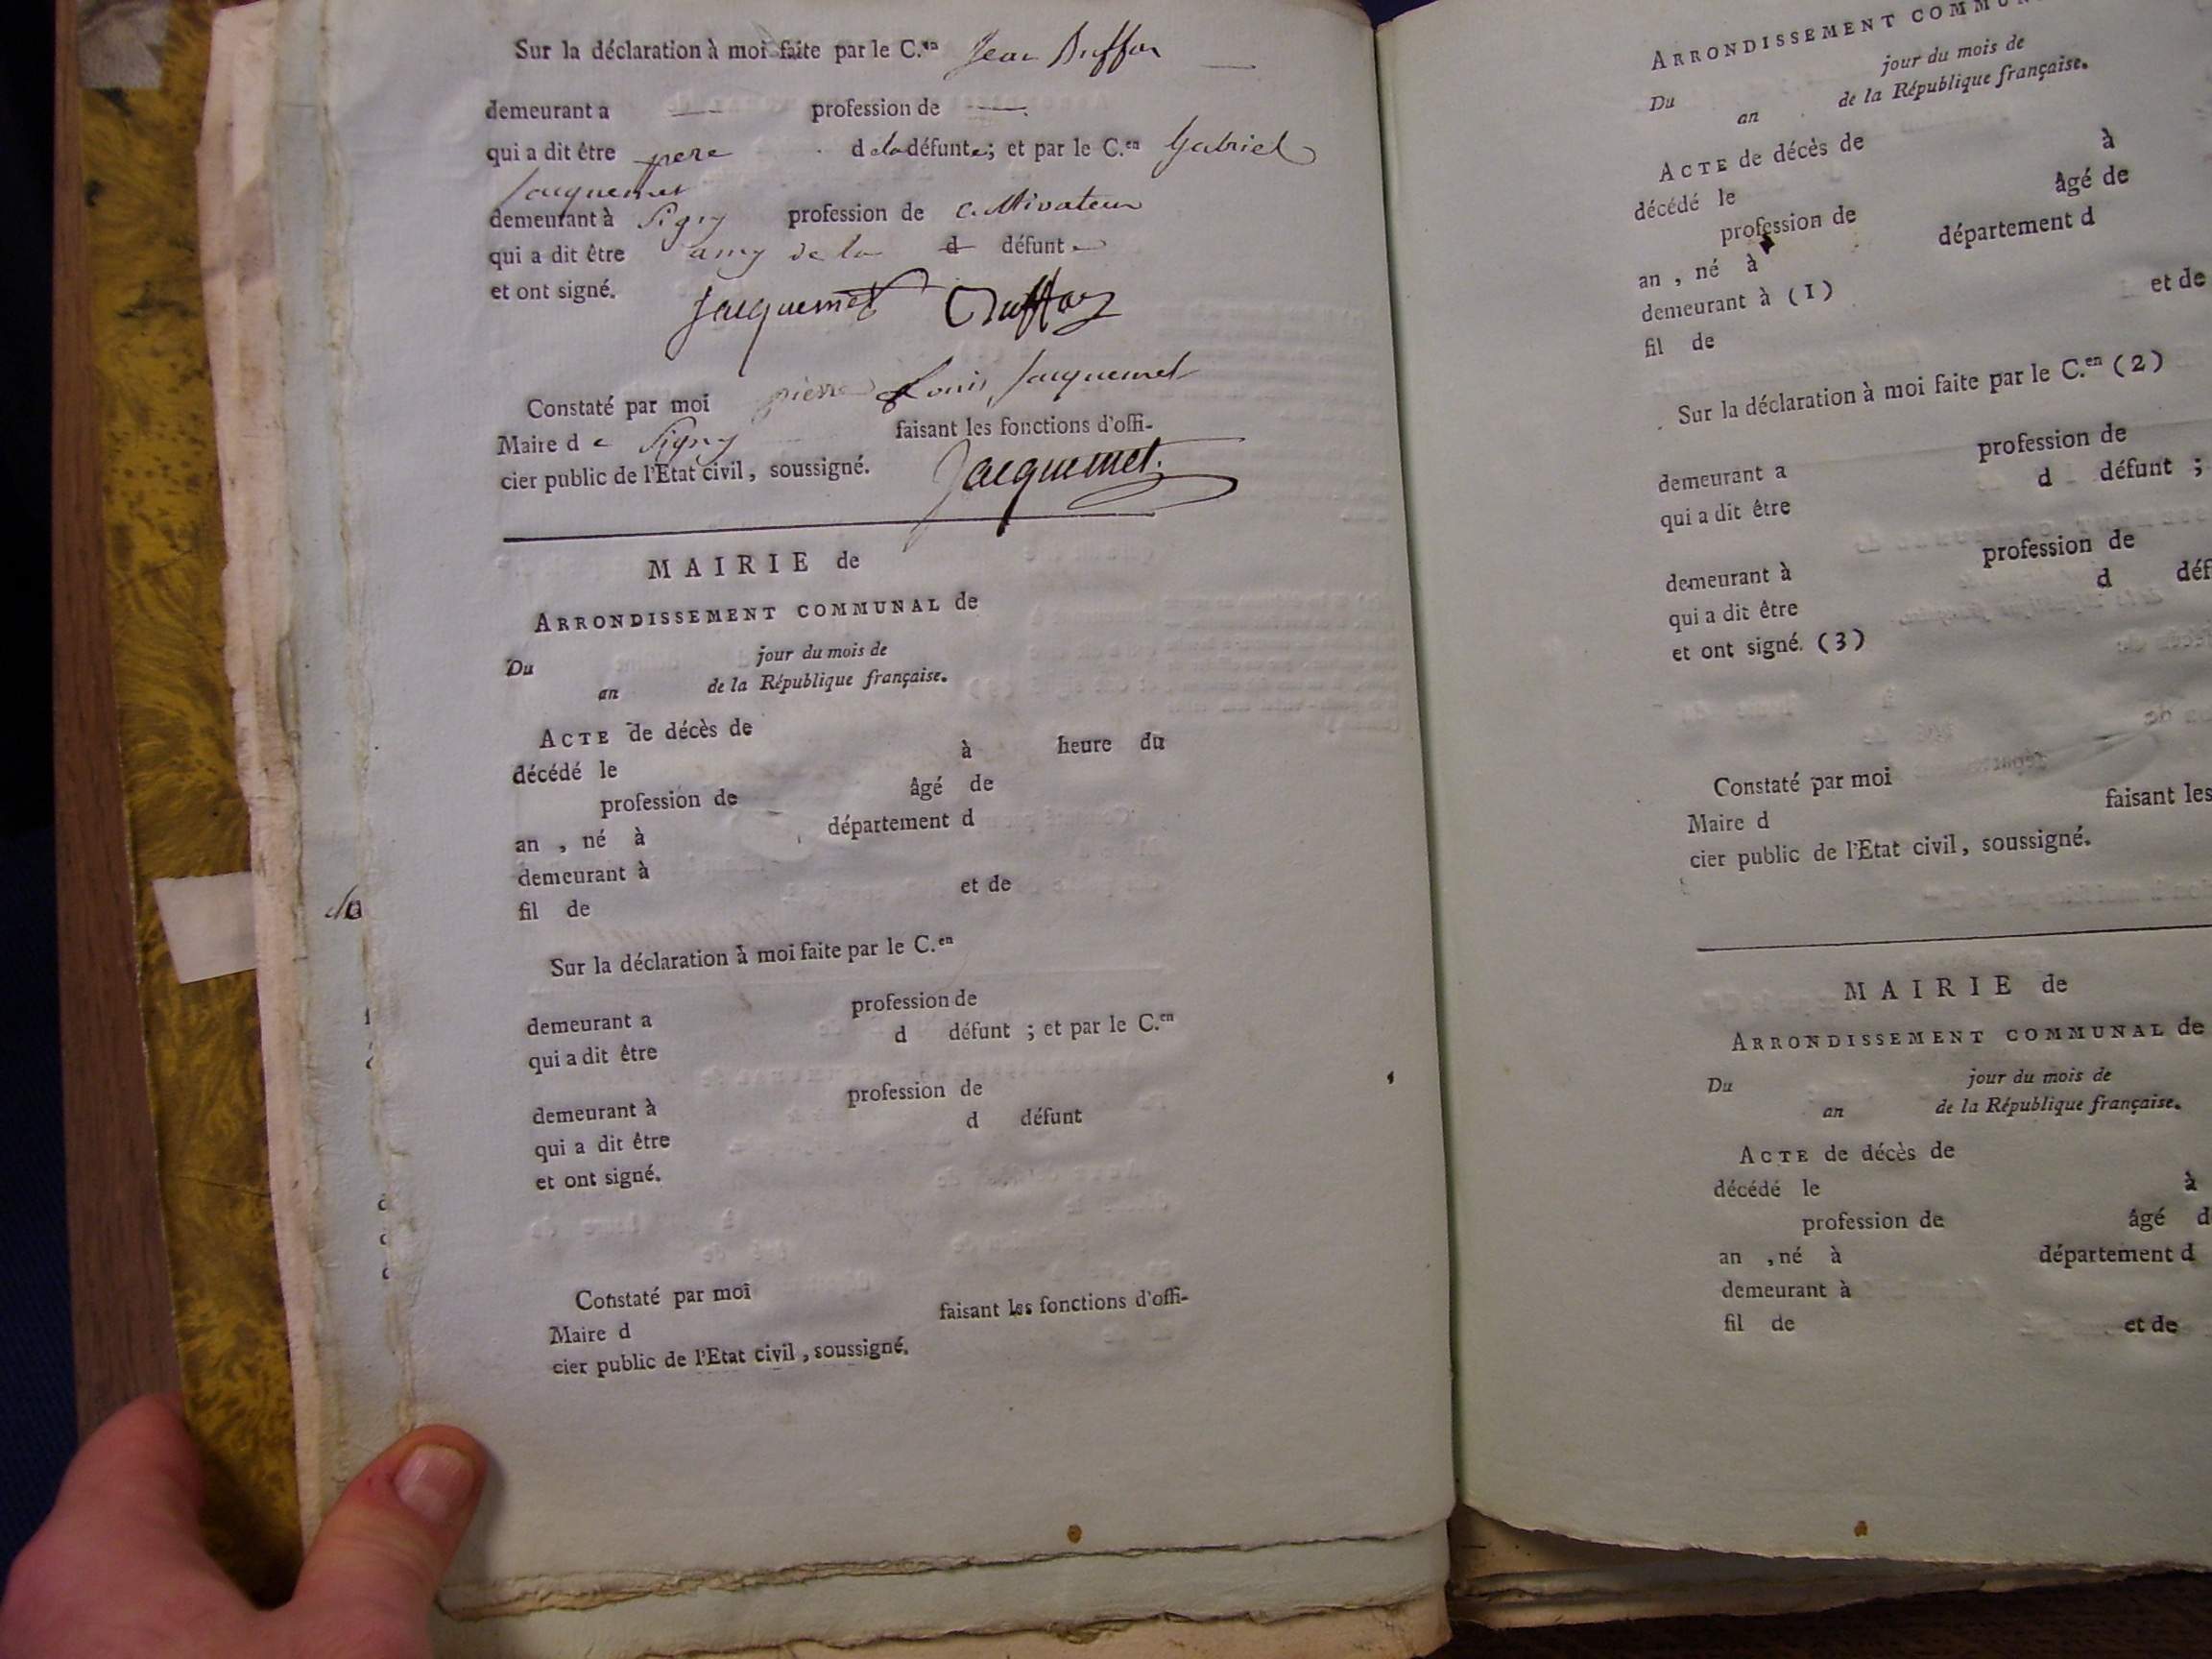 Sur la déclaration à moi faite par le C.en Jean Duffour
demeurant a — profession de —.
qui a dit être pere de la défunte; et par le C.en Gabriel
Jacquemet
demeurant à Signy profession de cultivateur
qui a dit être amy de la d défunte
et ont signé.
Jacquemet Duffour
Constaté par moi pierre Louis Jacquemet
Maire de Signy faisant les fonctions d'offi-
cier public de l'Etat civil, soussigné.
Jacquemet.
MAIRIE de
ARRONDISSEMENT COMMUNAL de
Du jour du mois de
an de la République française.
ACTE de décès de
décédé le à heure du
profession de âgé de
an , né à département d
demeurant à
fil de et de
Sur la déclaration à moi faite par le C.en
demeurant a profession de
qui a dit être d défunt ; et par le C.en
demeurant à profession de
qui a dit être d défunt
et ont signé.
Constaté par moi
Maire d faisant les fonctions d'offi-
cier public de l'Etat civil, soussigné.
ARRONDISSEMENT
Du jour du mois de
an de la République française.
ACTE de décès de
décédé le à
profession de âgé de
an , né à département d
demeurant à (1)
fil de et de
Sur la déclaration à moi faite par le C.en (2)
demeurant a profession de
qui a dit être d défunt ;
demeurant à profession de
qui a dit être d déf
et ont signé. (3)
Constaté par moi
Maire d faisant les
cier public de l'Etat civil, soussigné.
MAIRIE de
ARRONDISSEMENT COMMUNAL de
Du jour du mois de
an de la République française.
ACTE de décès de
décédé le à
profession de âgé d
an , né à département d
demeurant à
fil de et de